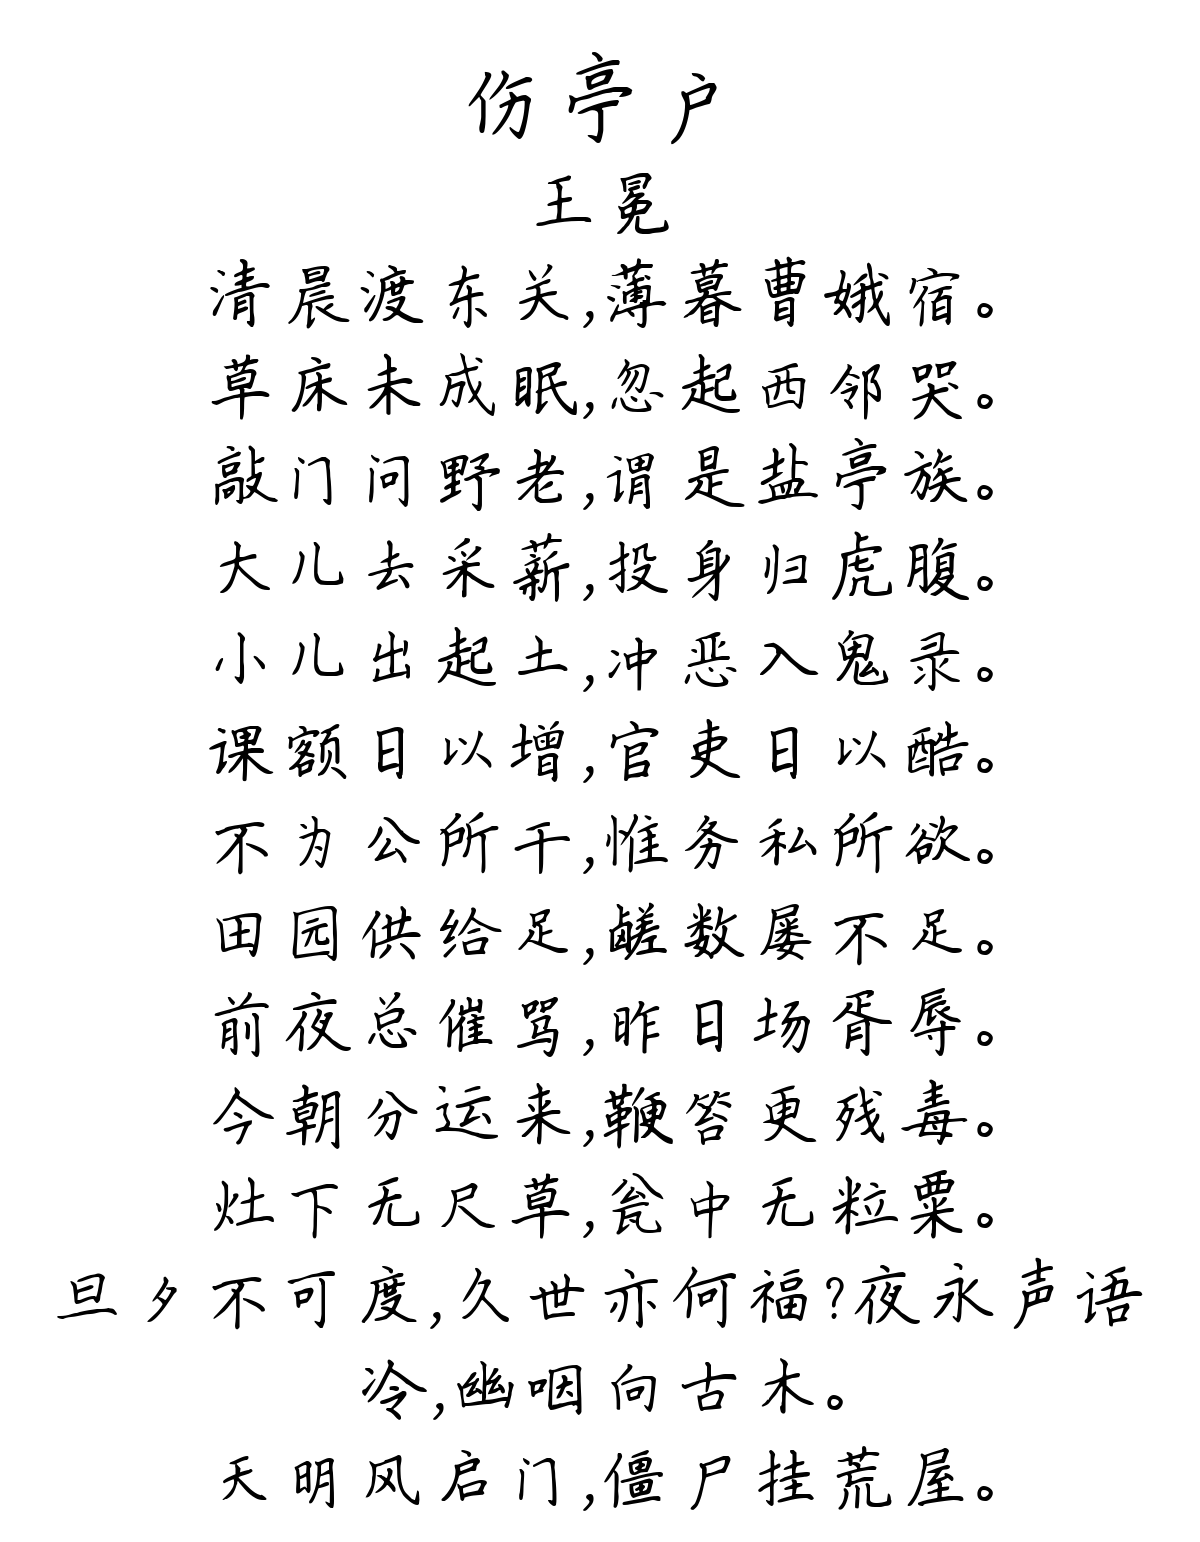 伤亭户
王冕
清晨渡东关,薄暮曹娥宿。
草床未成眠,忽起西邻哭。
敲门问野老,谓是盐亭族。
大儿去采薪,投身归虎腹。
小儿出起土,冲恶入鬼录。
课额日以增,官吏日以酷。
不为公所干,惟务私所欲。
田园供给足,鹾数屡不足。
前夜总催骂,昨日场胥辱。
今朝分运来,鞭笞更残毒。
灶下无尺草,瓮中无粒粟。
旦夕不可度,久世亦何福?夜永声语
冷,幽咽向古木。
天明风启门,僵尸挂荒屋。